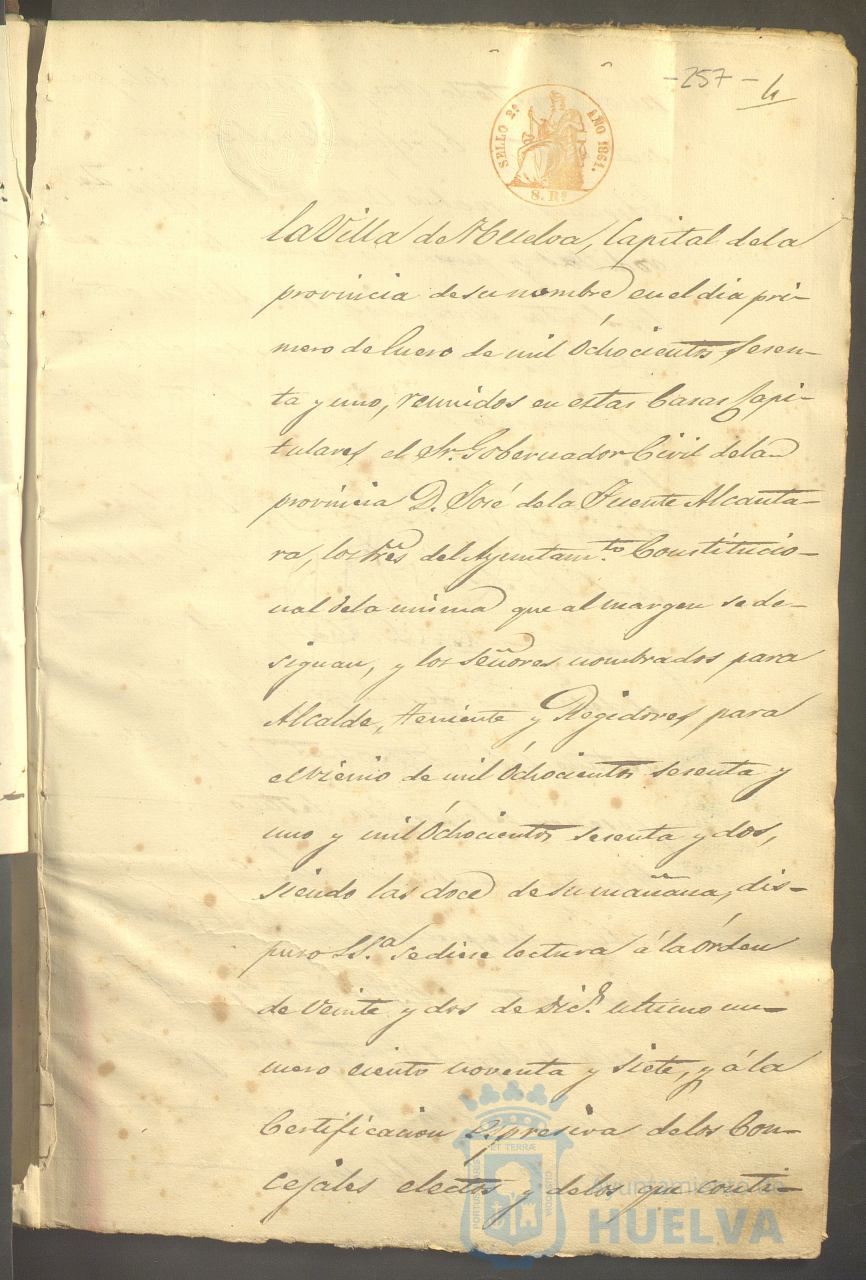 -257-
4
SELLO 2º AÑO 1861.
8. Rs
la Villa de Huelva, Capital de la
provincia de su nombre en el dia pri-
mero de Enero de mil Ochocientos sesen-
ta y uno, reunidos en estas Casas Capi-
tulares el Sr. Gobernador Civil de la
provincia D. José de la Fuente Alcanta-
ra, los Sres del Ayuntamto. Constitucio-
nal de la misma que al margen se de-
signan, y los Señores nombrados para
Alcalde, Teniente y Regidores para
el vienio de mil Ochocientos sesenta y
uno y mil Ochocientos sesenta y dos,
siendo las doce de su mañana, dis-
puso S.Sa. se diese lectura á la Orden
de Veinte y dos de Dice. ultimo nu-
mero ciento noventa y siete, y á la
Certificacion espresiva de los Con-
cejales electos y de los que conti-
ET TERRÆ
Ayuntamiento de
HUELVA